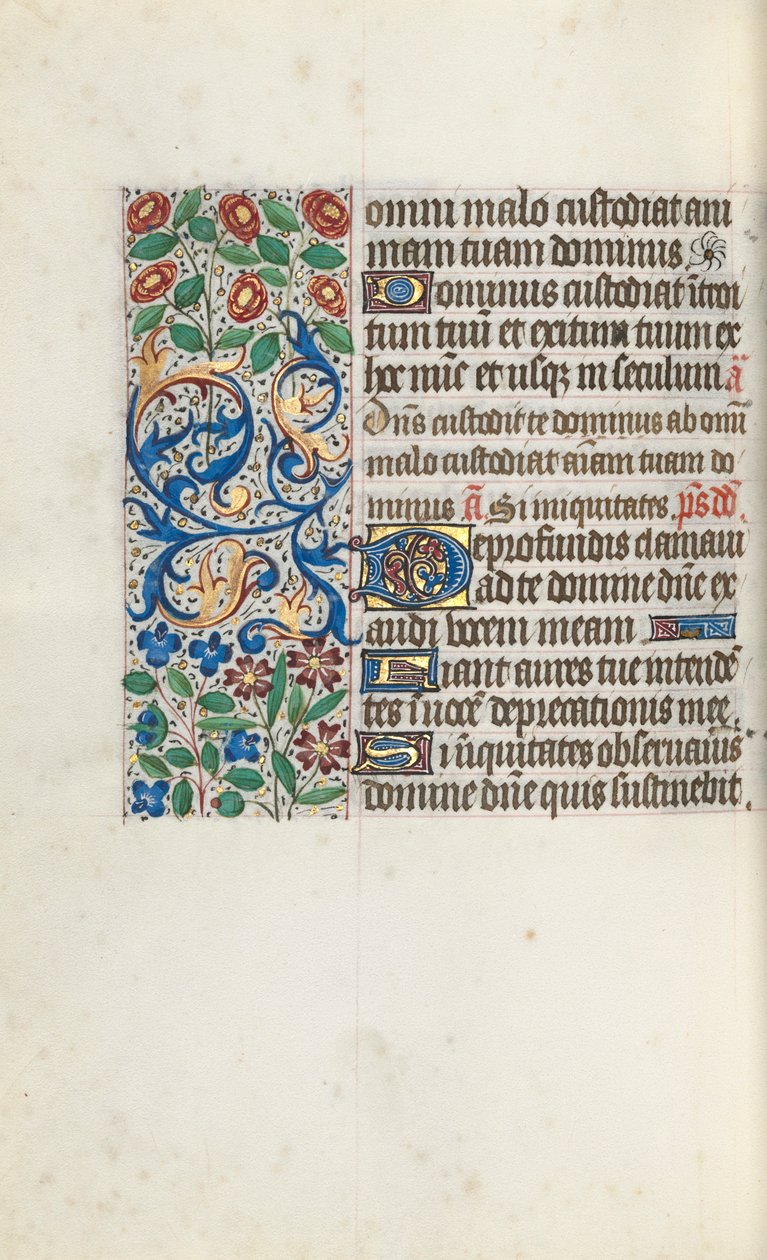 omni malo custodiat ani
mam tuam dominus
Dominus custodiat ītroi
tum tuū et exitum tuum ex
hoc nūc et usqꝫ in seculum ā
Dn̄s custodit te dominus ab omī
malo custodiat aīam tuam do
minus ā. Si iniquitates. ps̄ dd̄.
De profundis clamaui
ad te domine dn̄e ex
audi vocem meam
Fiant aures tue intendē
tes ī uocē deprecationis mee.
Si īiquitates obseruaueris
domine dn̄e quis sustinebit